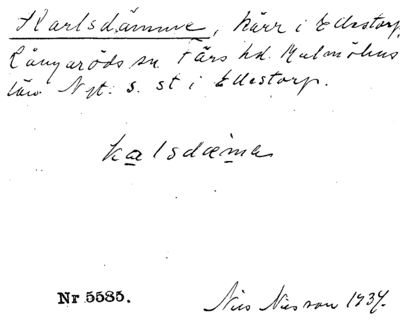 Karlsdämme, kärr i Ellestorp,
Långaröds sn Färs hd. Malmöhus
län Nyt. s. st i Ellestorp.
kalsdæma
Nr 5585.
Nils Nilsson 1934.